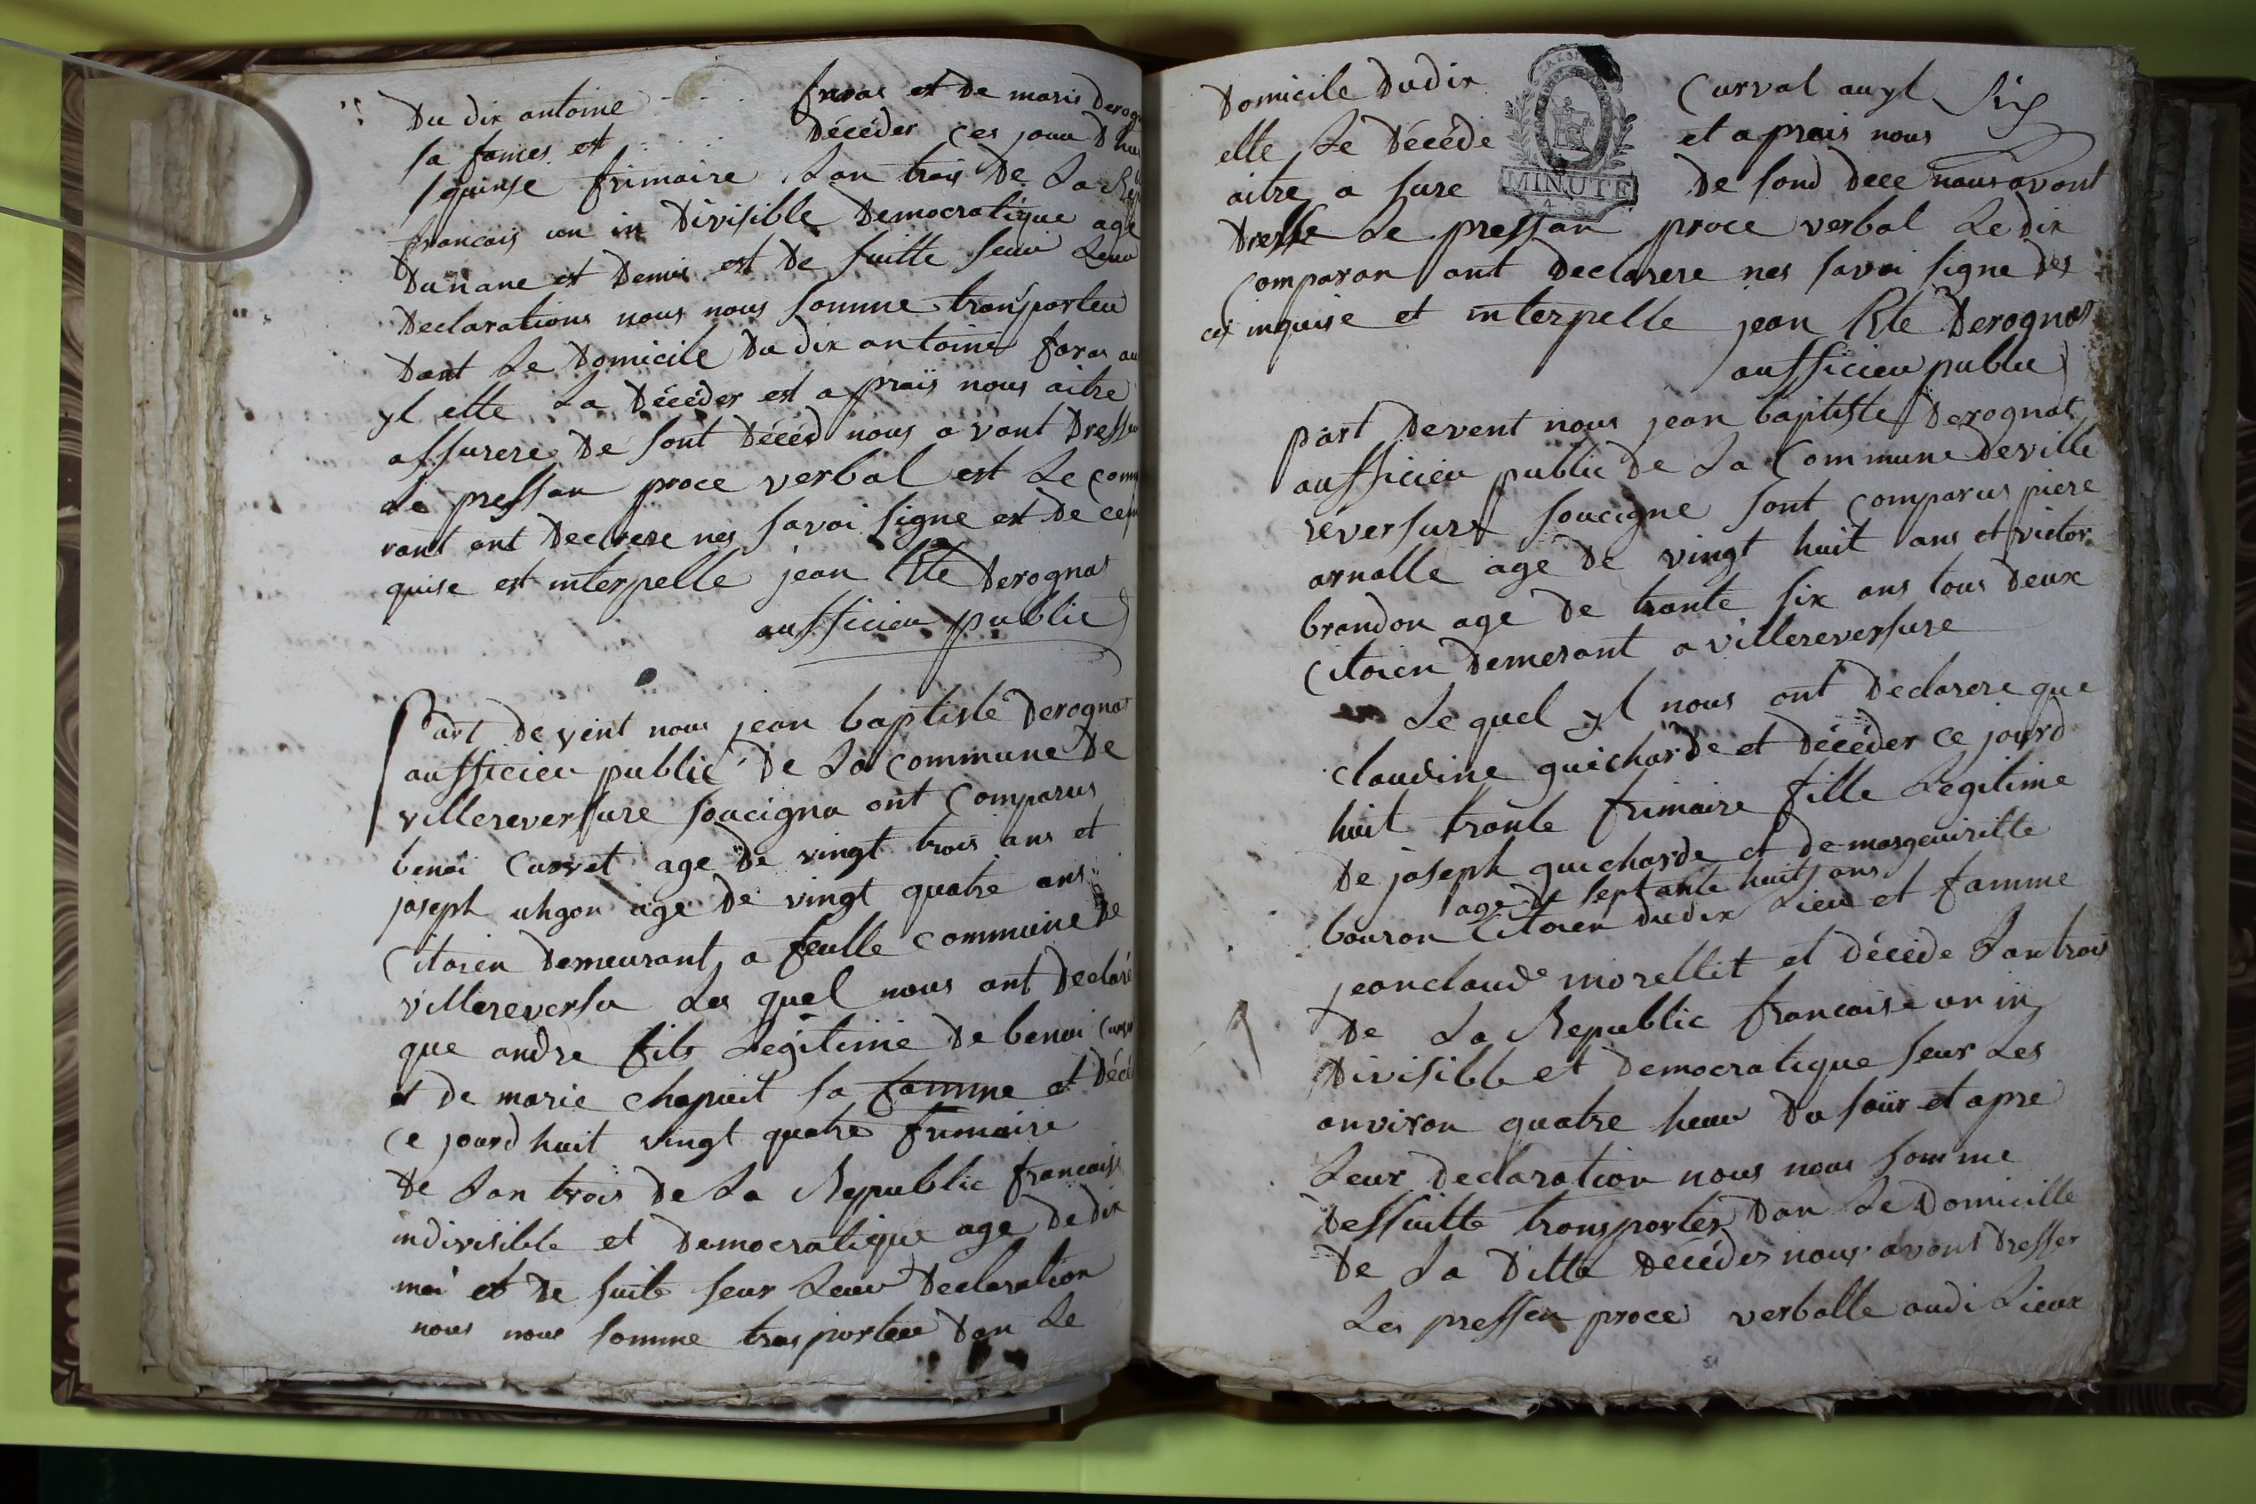 Du dix antoine faras et de maris derog
sa fames est Décéder ces jour D hui
quinse frimaire Lan trois De La Rep
francais un in Divisible Democratique age
Du nane est Demis est De suitte seur Leur
Declarations nous nous somme transporteu
Dant Le Domicile Du dix antoine faras au
yl elle La Décéder est aprais nous aitre
assurere De sont Décéd nous avont Dresse
Le pressan proce verbal est Le com
rant ont Declarere nes savoi signe est De ce
quise est interpelle jean Bte Derognat
aufficieu public
Part devent nous jean baptiste Derognat
aufficieu public De La Commune De
villereversure soucigna ont Comparus
benoi Curvet age De vingt trois ans et
joseph uhgon age De vingt quatre ans
Citoien Demeurant a feulle commune De
villereversu Les quel nous ont Declaré
que andre fils Legitime De benoi Curv
et De marie chapuit sa famme et Décé
Ce jourd huit vingt quatre frimaire
De Lan trois De La Republic francaise
indivisible et Democratique age De dix
moi et De suite seur Leur Declaration
nous nous somme trasporteu Dan Le
Domicile Dudix Curval au yl
elle Le Décéde et aprais nous
aitre a sure De sond Dece nous avont
MINUTE
Dresse Le pressan proce verbal Le dix
Comparan ont Declarere nes savoi signe des
ces inquise et interpelle jean Bte Derognat
aufficieu public
part Devent nous jean baptiste Derognat
aufficieu public De La Commune Deville
reversure soucigne sont Comparus piere
arnalle age De vingt huit ans et victor
brandon age De trante six ans tous Deux
Citoien Demerant a villereversure
Le quel yl nous ont Declarere que
claudine guicharde et Décéder ce jourd
huit trante frimaire fille Legitime
De joseph guicharde et De margeuiritte
age De septante huit ans
bouron Citoien Dudix Lieu et famme
jeanclaude morellit et décéde Lan trois
De La Republic francaise un in
Divisible et Democratique seur Les
anviron quatre heur Du soir et apre
Leur Declaration nous nous somme
Dessuitte transporter Dan Le Domicille
De La Ditta Decéder nous avons Dresser
Les pressen proce verballe audi Lieux
51